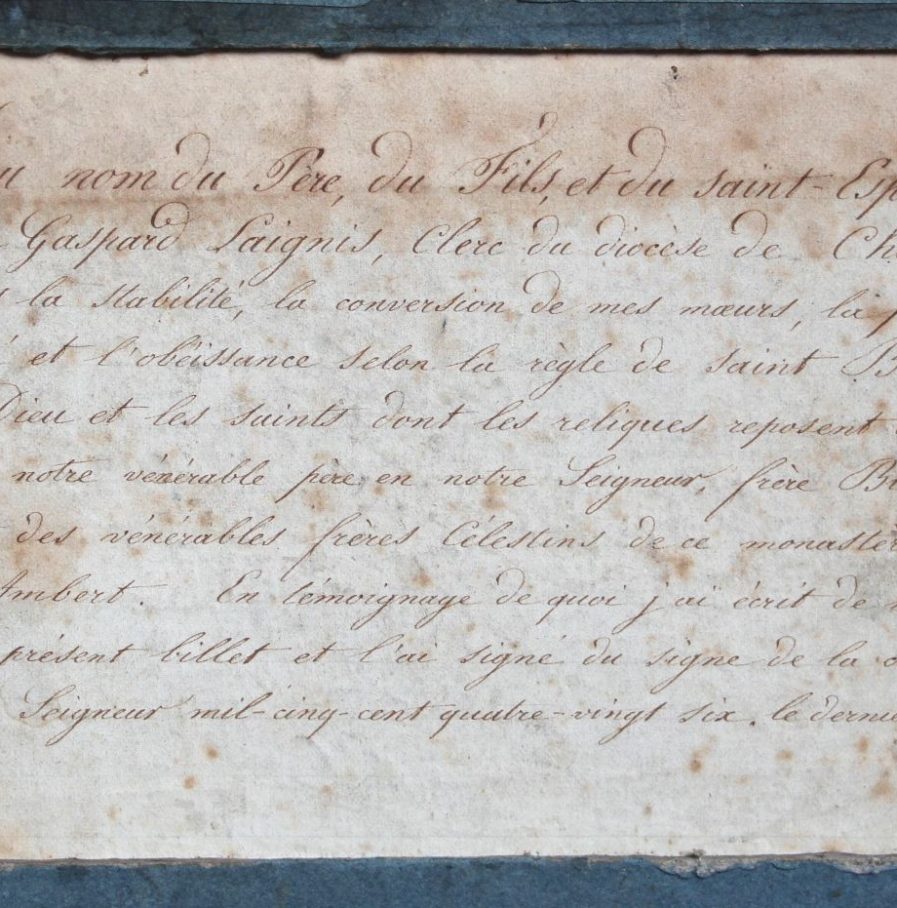 nom du Père, du Fils, et du saint-Esp
Gaspard Laignis, Clerc du diocèse de Ch
la stabilité, la conversion de mes mœurs, la p
et l'obéissance selon la règle de saint B
Dieu et les saints dont les reliques reposent
notre vénérable père en notre Seigneur, frère B
des vénérables frères Célestins de ce monastèr
Ambert. En témoignage de quoi j'ai écrit de
présent billet et l'ai signé du signe de la
Seigneur mil-cinq-cent quatre-vingt six. le derni